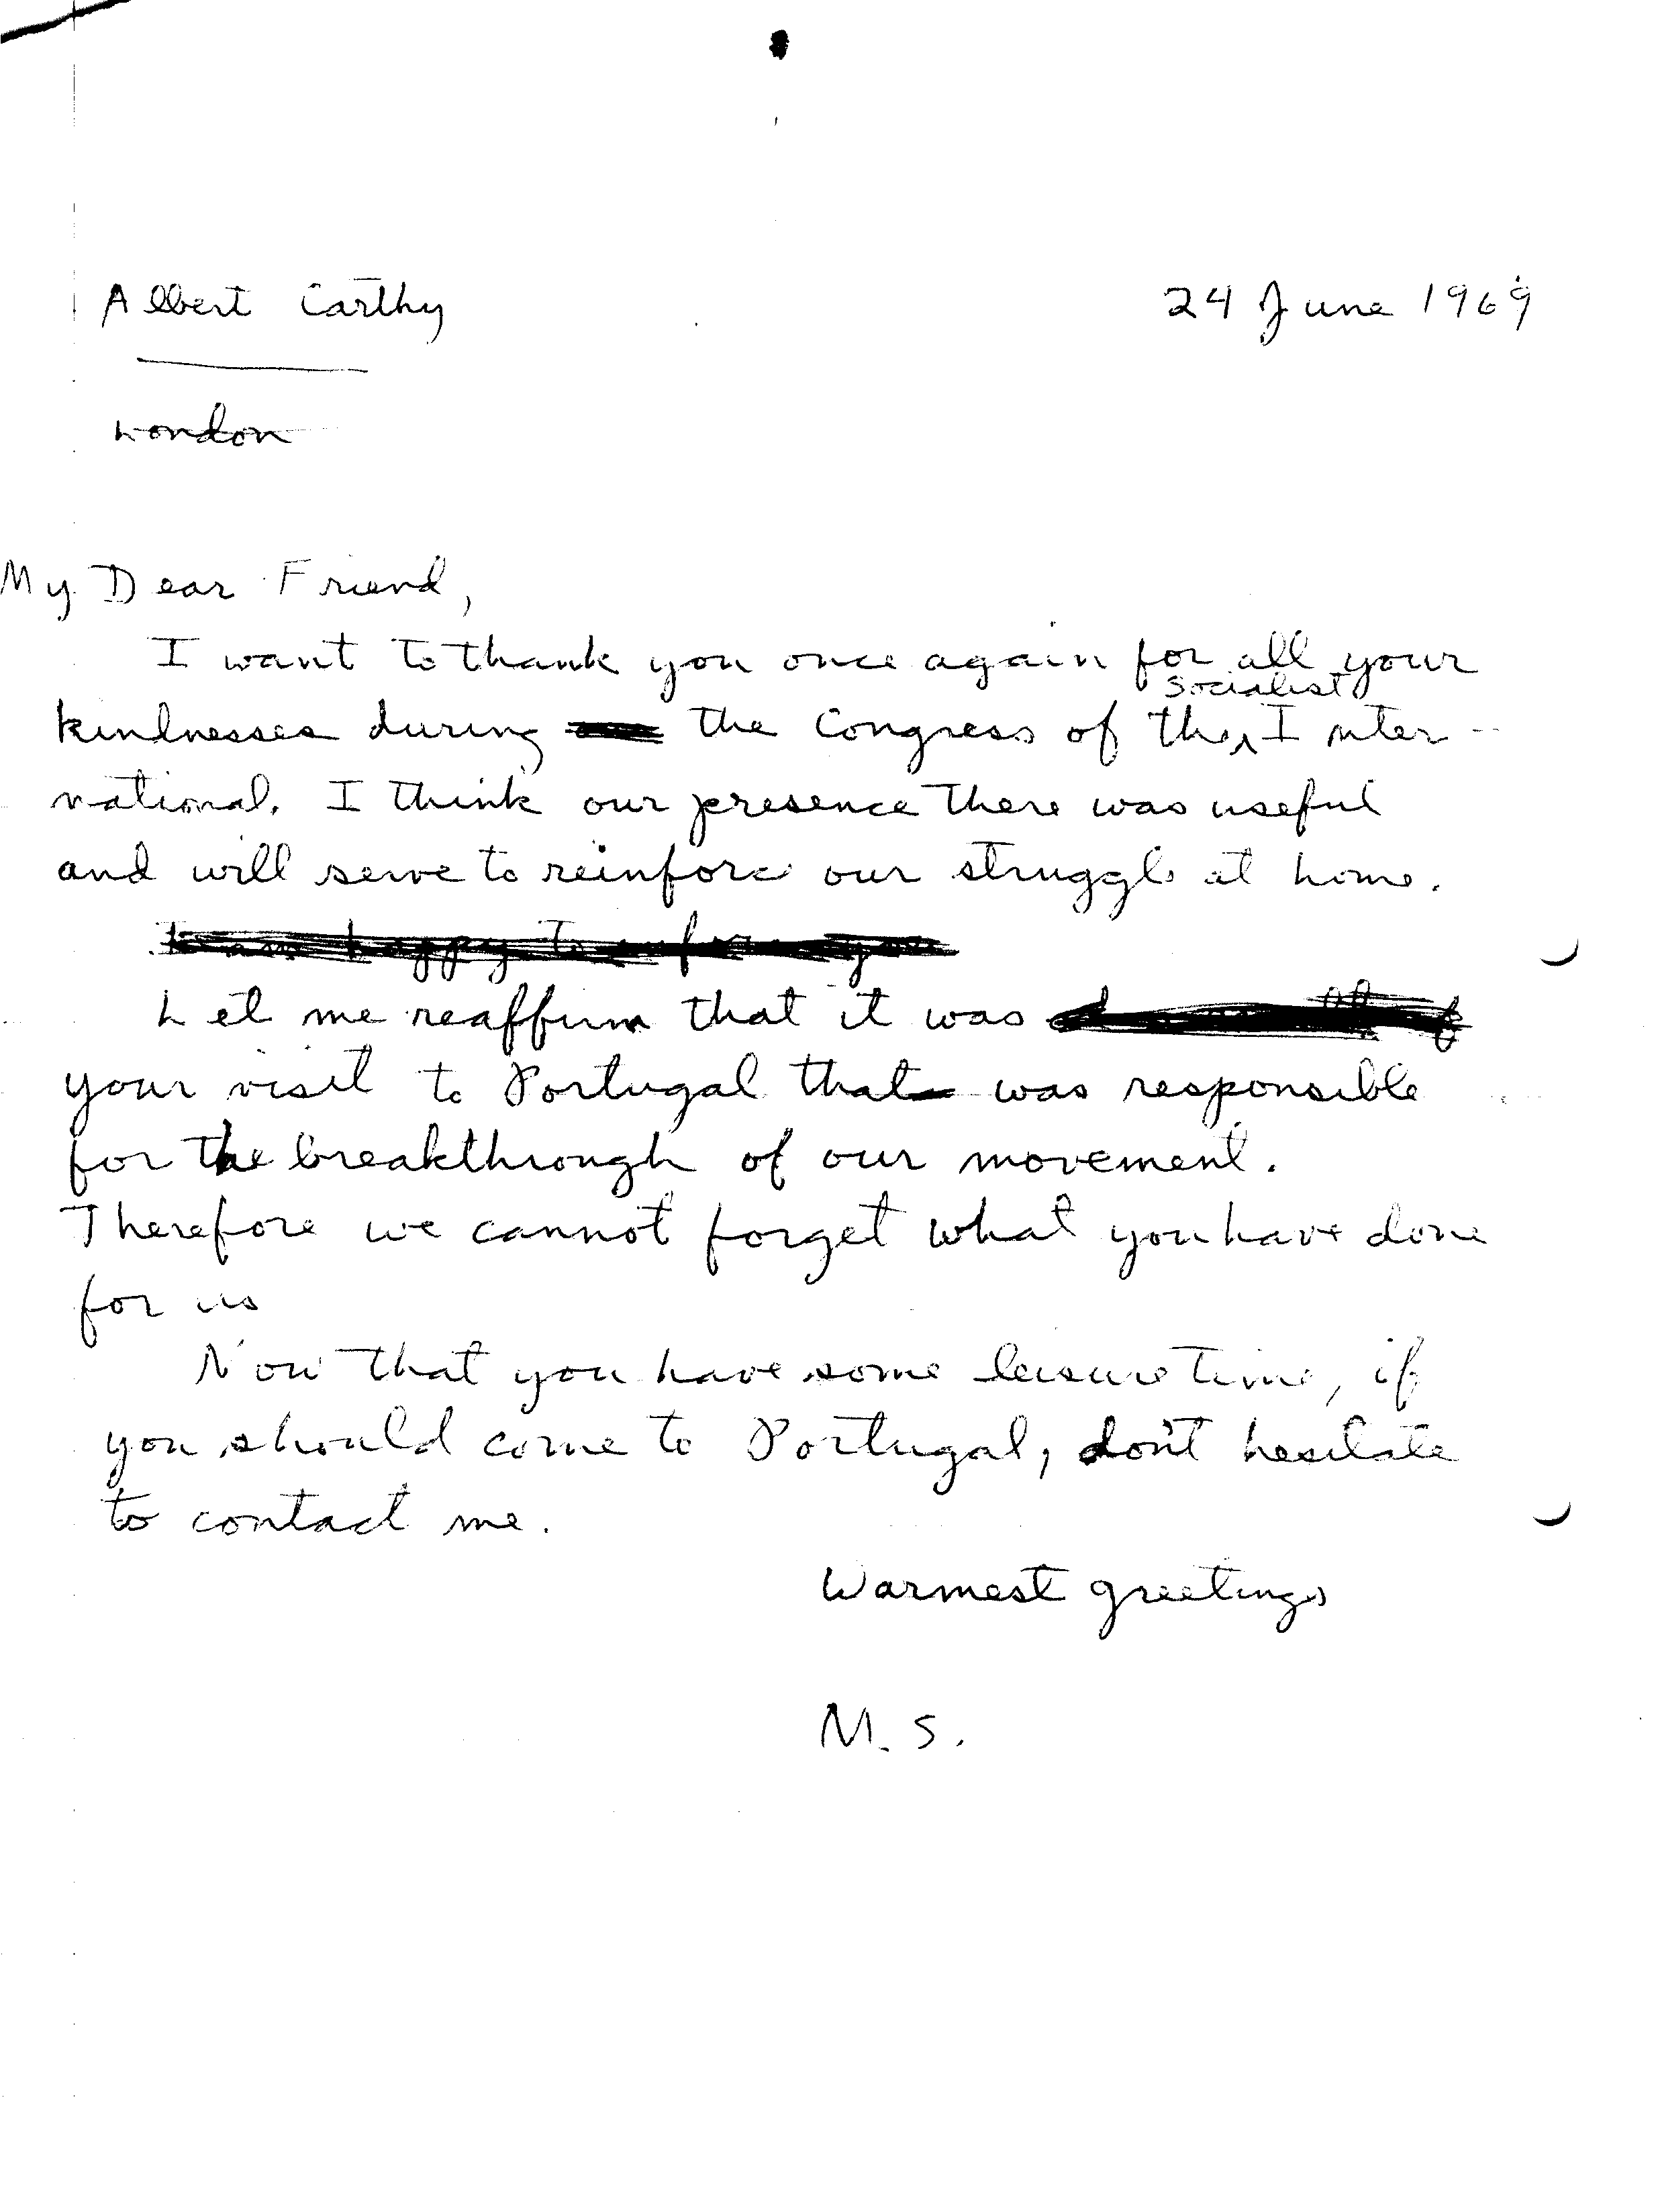 Albert Carthy
24 June 1969
London
My Dear Friend,
I want to thank you once again for all your
socialist
kindnesses during the Congress of the Inter-
national. I think our presence there was useful
and will serve to reinforce our struggle at home.
Let me reaffirm that it was
your visit to Portugal that was responsible
for the breakthrough of our movement.
Therefore we cannot forget what you have done
for us
Now that you have some leisure time, if
you should come to Portugal, don't hesitate
to contact me.
Warmest greetings
M. S.